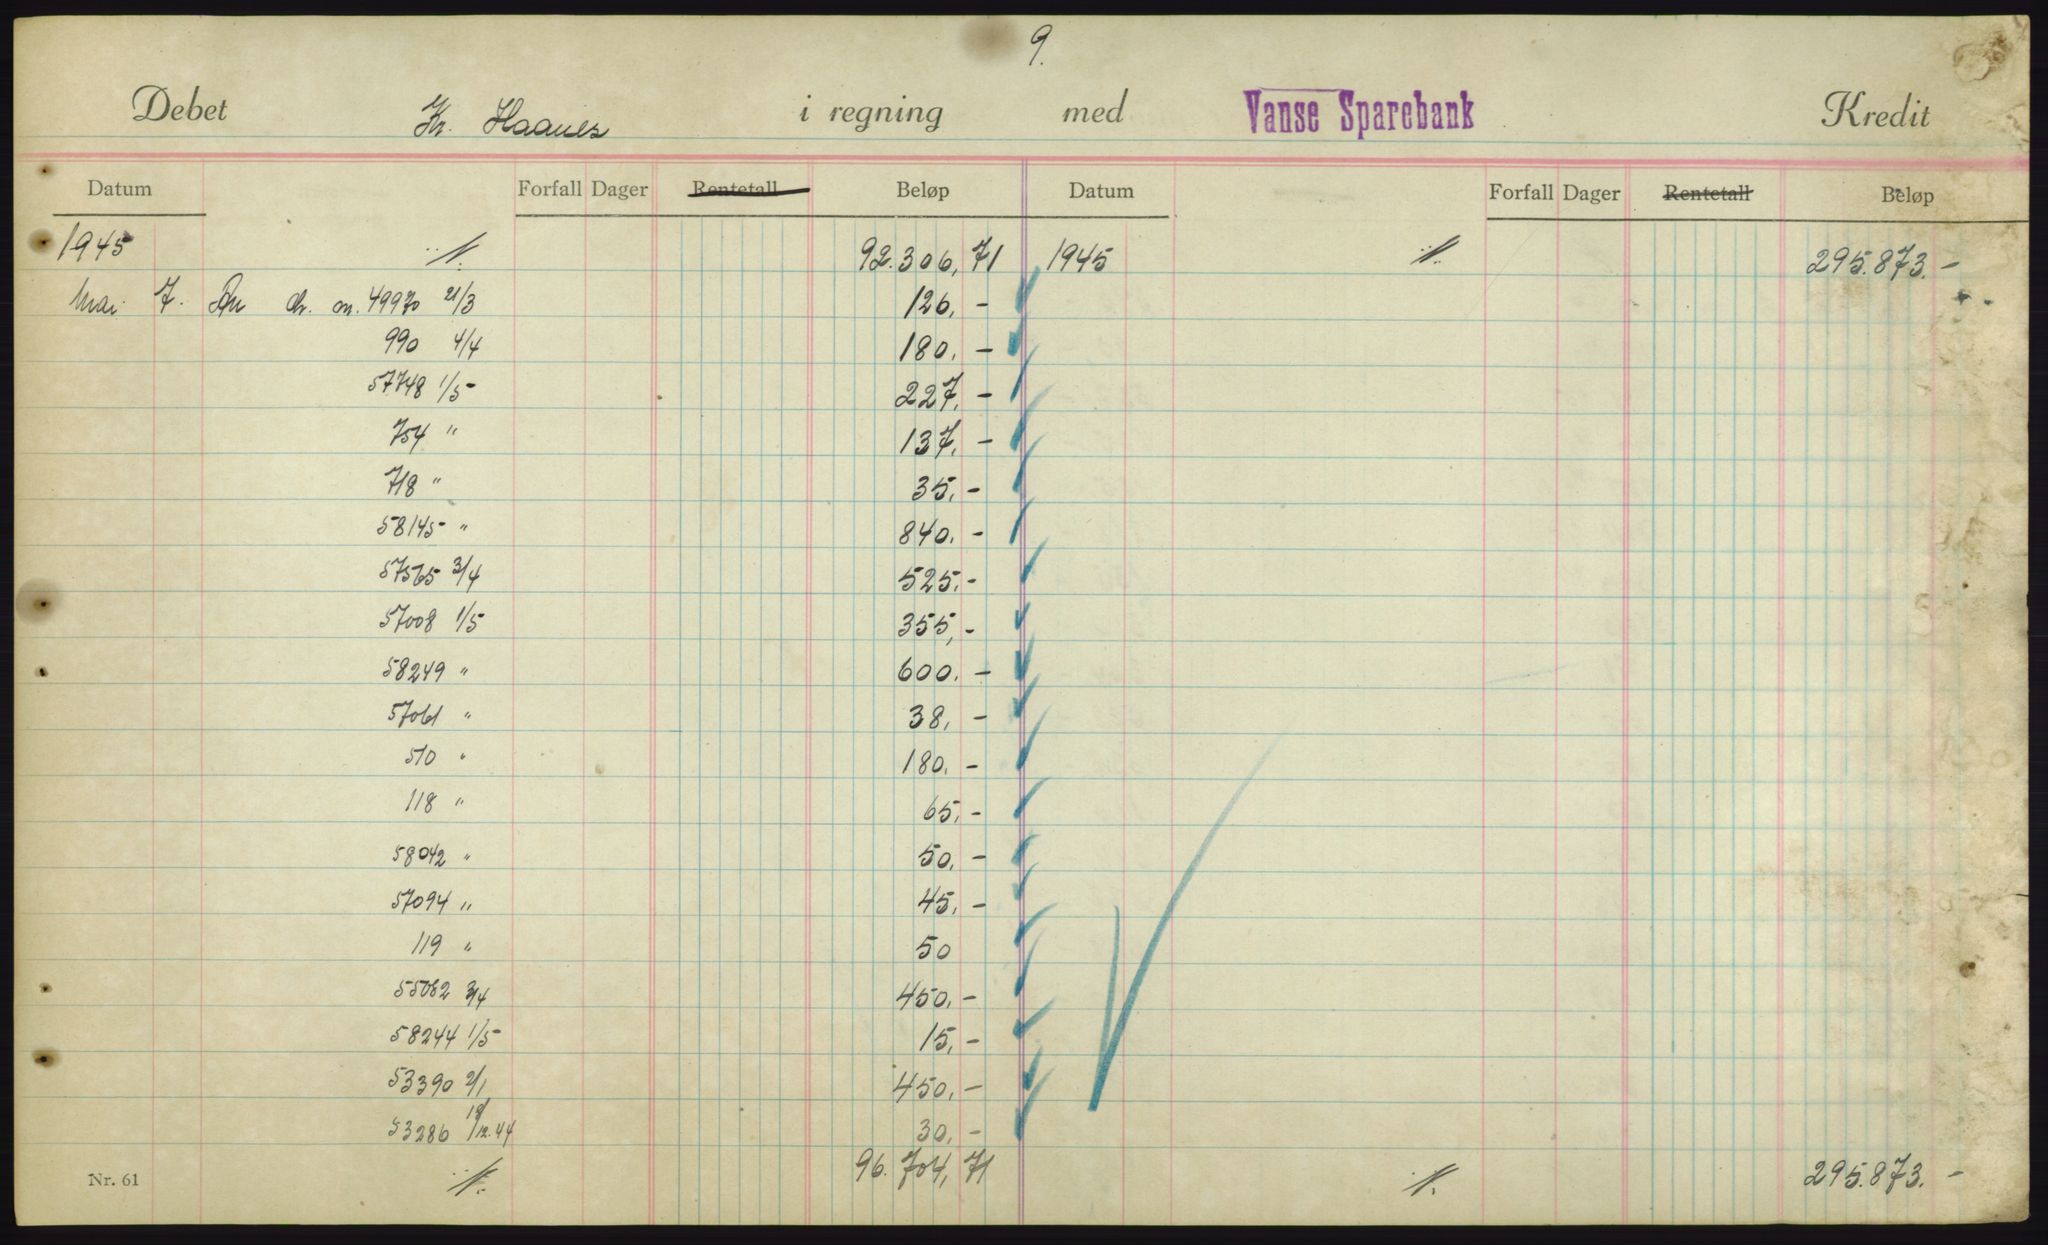 9.
Debet Kr. Haanes i regning med Vanse Sparebank Kredit
Datum Forfall Dager Rentetall Beløp Datum Forfall Dager Rentetall Beløp
1945 92.306,71 1945 295.873.-
Mai 7. 49970 21/3 126,-
990 4/4 180,-
57748 1/5 227,-
754 " 137,-
718 " 35,-
58145 " 840,-
57565 3/4 525,-
57008 1/5 355,-
58249 " 600,-
57061 " 38,-
510 " 180,-
118 " 65,-
58042 " 50,-
57094 " 45,-
119 " 50
55082 3/4 450,-
58244 1/5 15,-
53390 2/1 450,-
53286 /12.44 30,-
Nr. 61 96.704,71 295.873.-